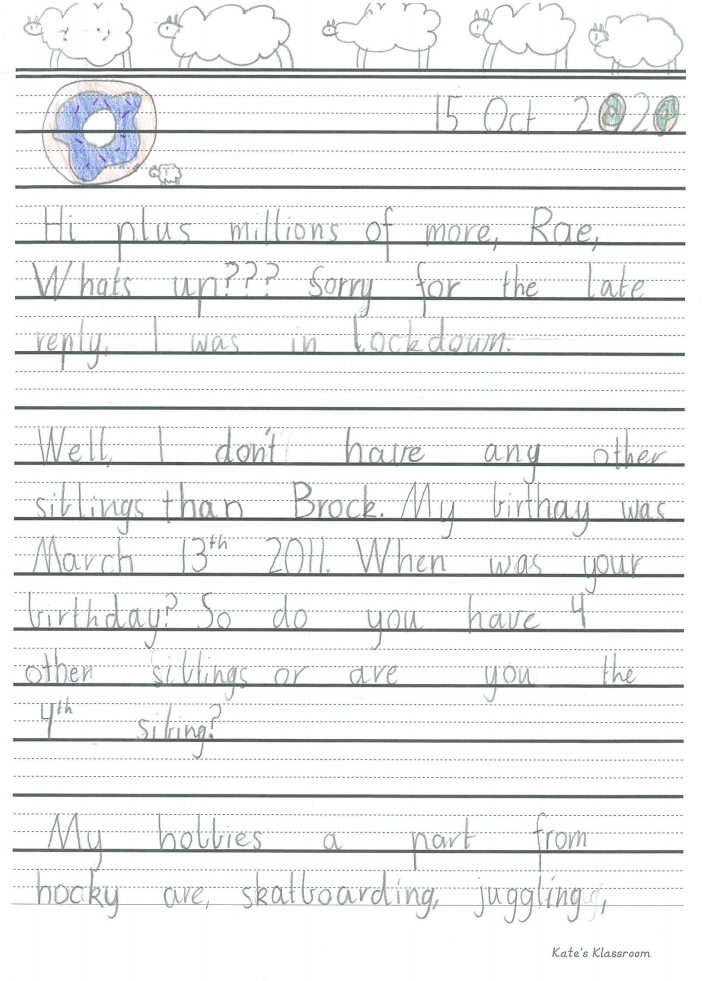 15 Oct 2020
Hi plus millions of more, Rae,
Whats up??? Sorry for the late
reply, I was in lockdown.
Well, I don't have any other
siblings than Brock. My birthay was
March 13th 2011. When was your
birthday? So do you have 4
other siblings or are you the
4th sibing?
My hobbies a part from
hocky are, skatboarding, juggling,
Kate's Klassroom